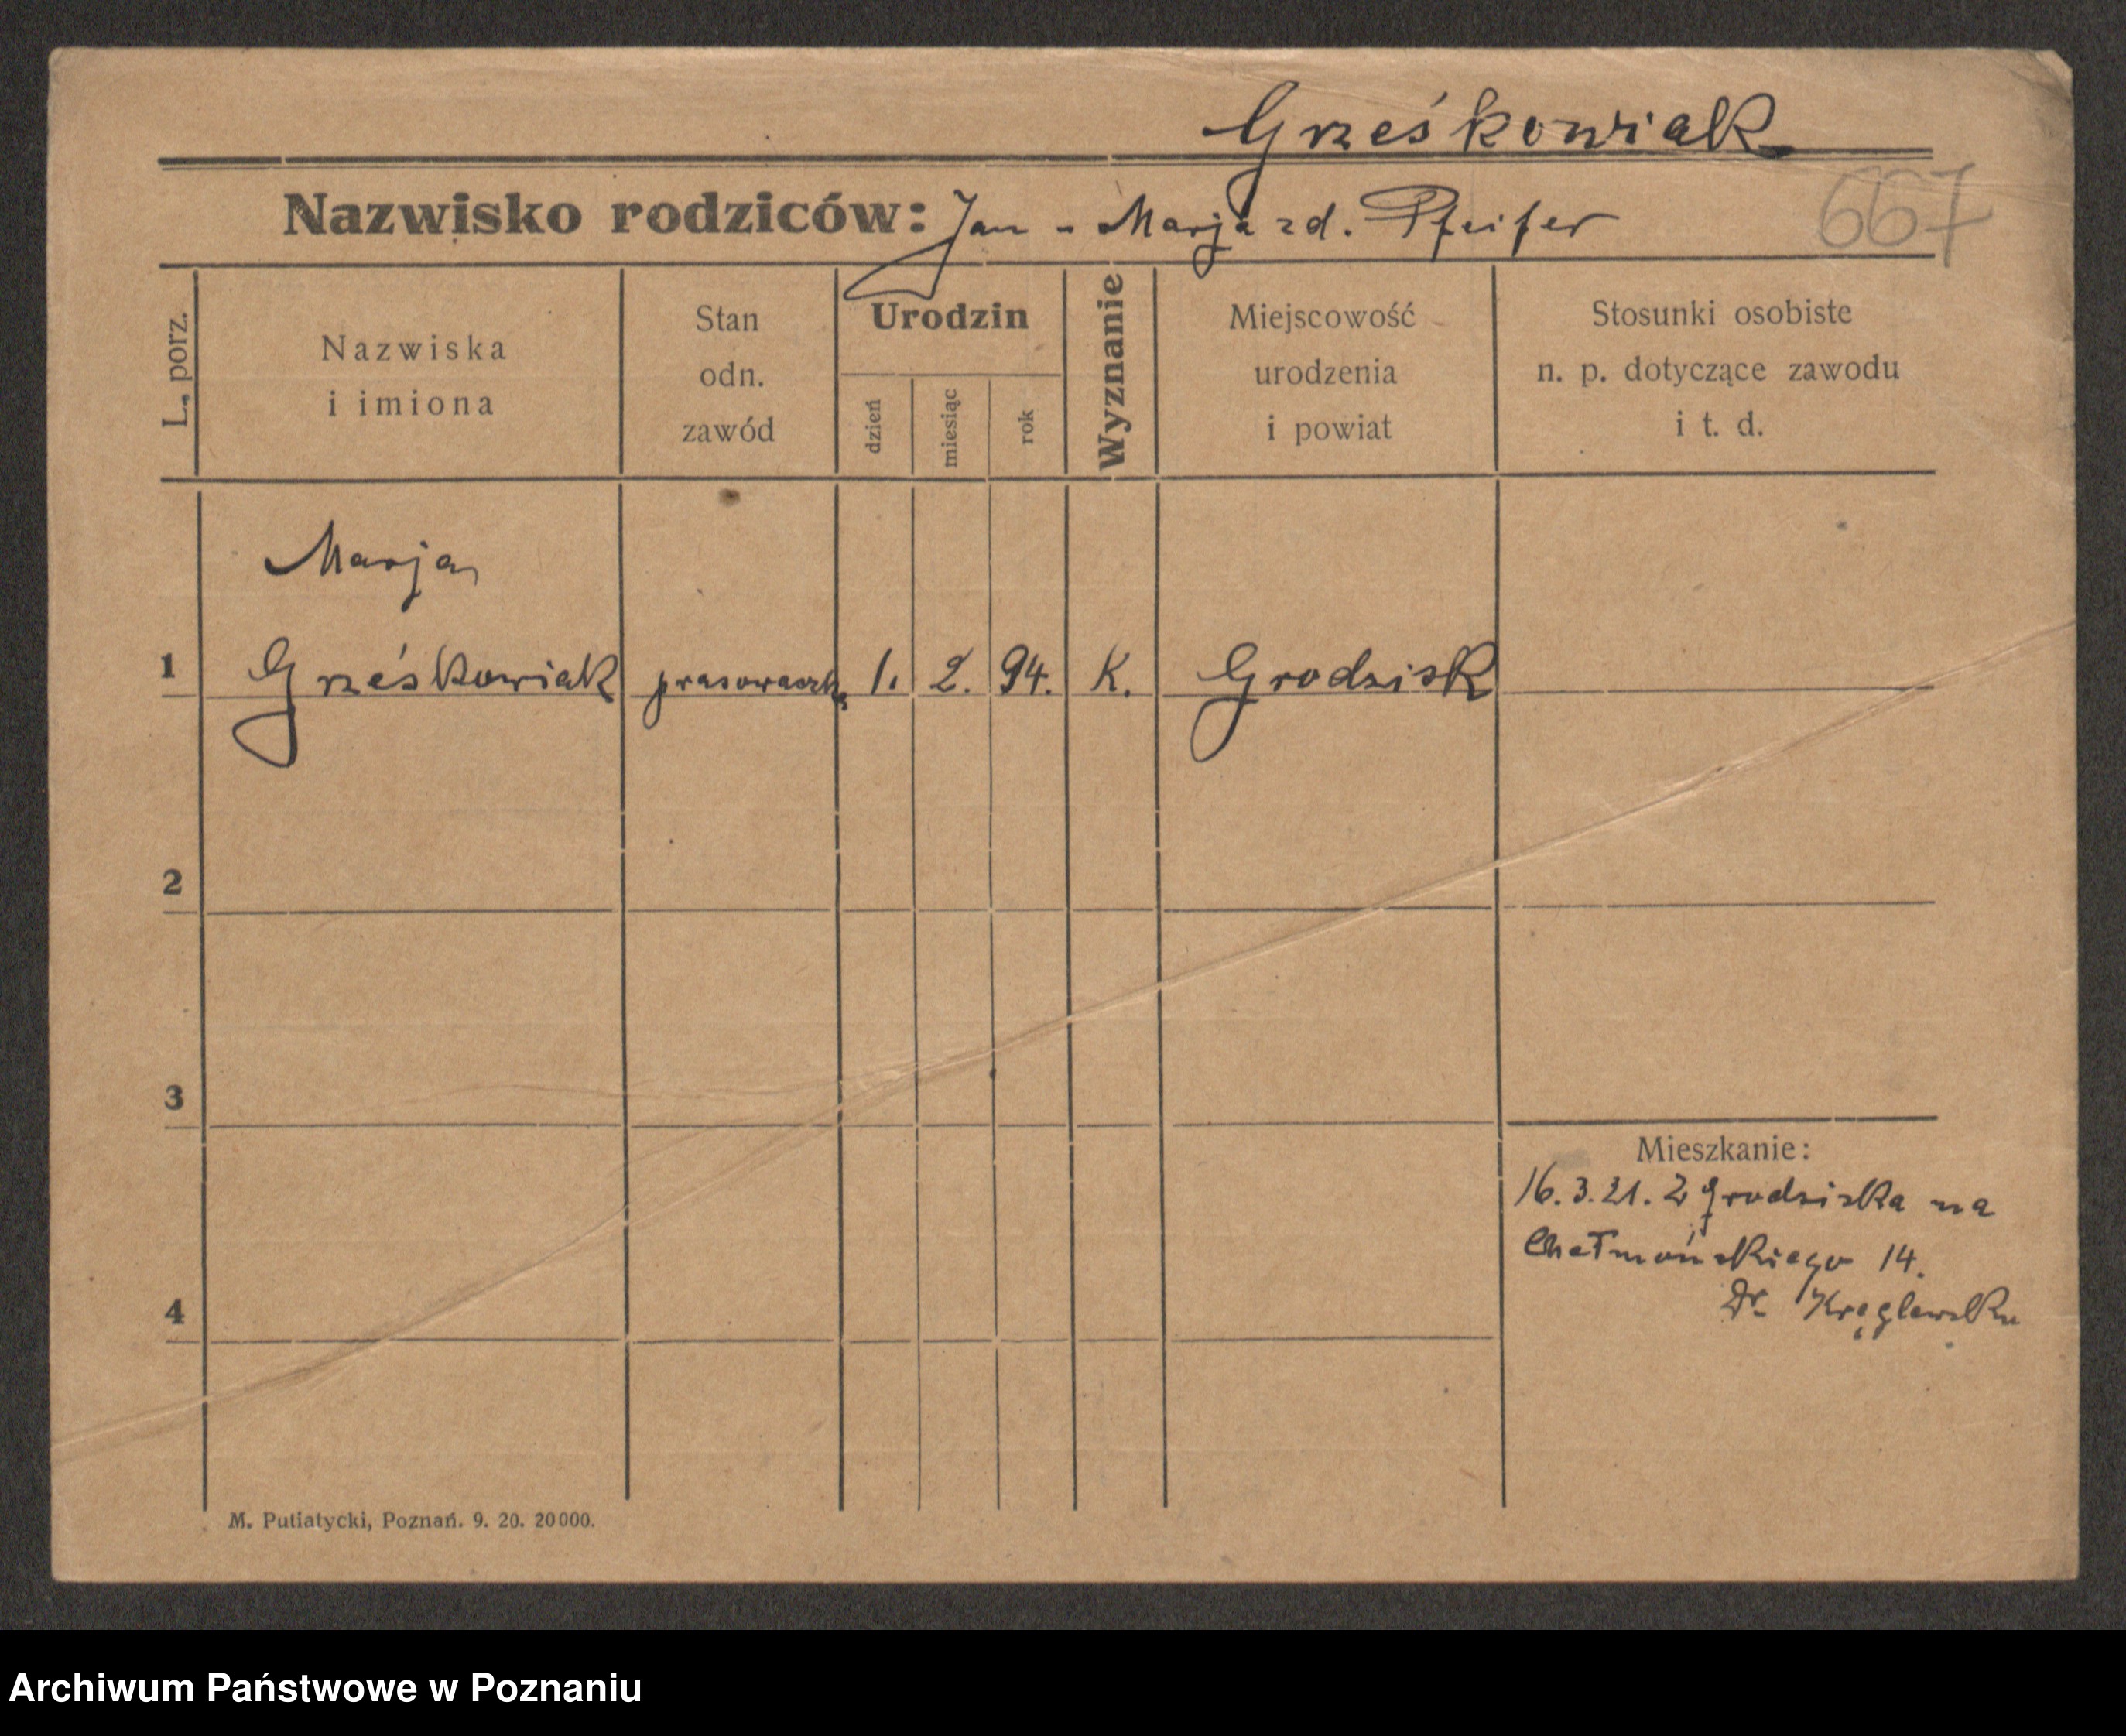 Grześkowiak
Nazwisko rodziców: Jan - Marja zd. Pfeifer
667
L. porz.
Nazwiska
i imiona
Stan
odn.
zawód
Urodzin
dzień
miesiąc
rok
Wyznanie
Miejscowość
urodzenia
i powiat
Stosunki osobiste
n. p. dotyczące zawodu
i t. d.
Marja
1 Grześkowiak prasowaczka 1. 2. 94. K. Grodzisk
2
3
4
Mieszkanie:
16.3.21. Z Grodziska na
Chełmońskiego 14.
Dr.
M. Putiatycki, Poznań. 9. 20. 20000.
Archiwum Państwowe w Poznaniu